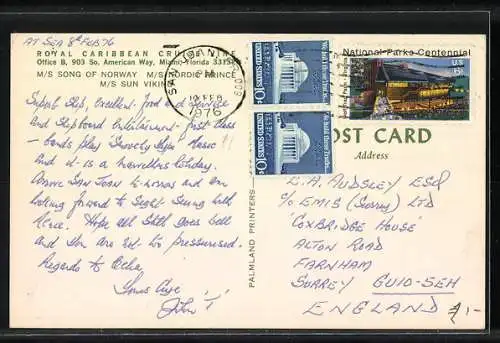 AT SEA 8th FEB 76
ROYAL CARIBBEAN CRUISE
Office B, 903 So. American Way, Miami, Florida 331
M/S SONG OF NORWAY M/S NORDIC PRINCE
M/S SUN VIKING
Superb Ship, Excellent food and Service
and Shipboard Entertainment first class
- bands play
and it is a marvellous holiday.
Arrive San Juan to-morrow and am
looking forward to Sight Seeing with
Hope all still goes well
and you are not to pressurised.
Regards to
Yours Aye
John 'T'
SAN JUAN
PM
10 FEB
1976
We hold these Truths
10c
UNITED STATES
We hold these Truths
10c
UNITED STATES
National Parks Centennial
US 6c
POST CARD
Address
PALMLAND PRINTERS
L.A. AUDSLEY ESQ
c/o EMIS (Surrey) LTD
'COXBRIDGE HOUSE'
ALTON ROAD
FARNHAM
SURREY GUID-SEH
ENGLAND
1,-